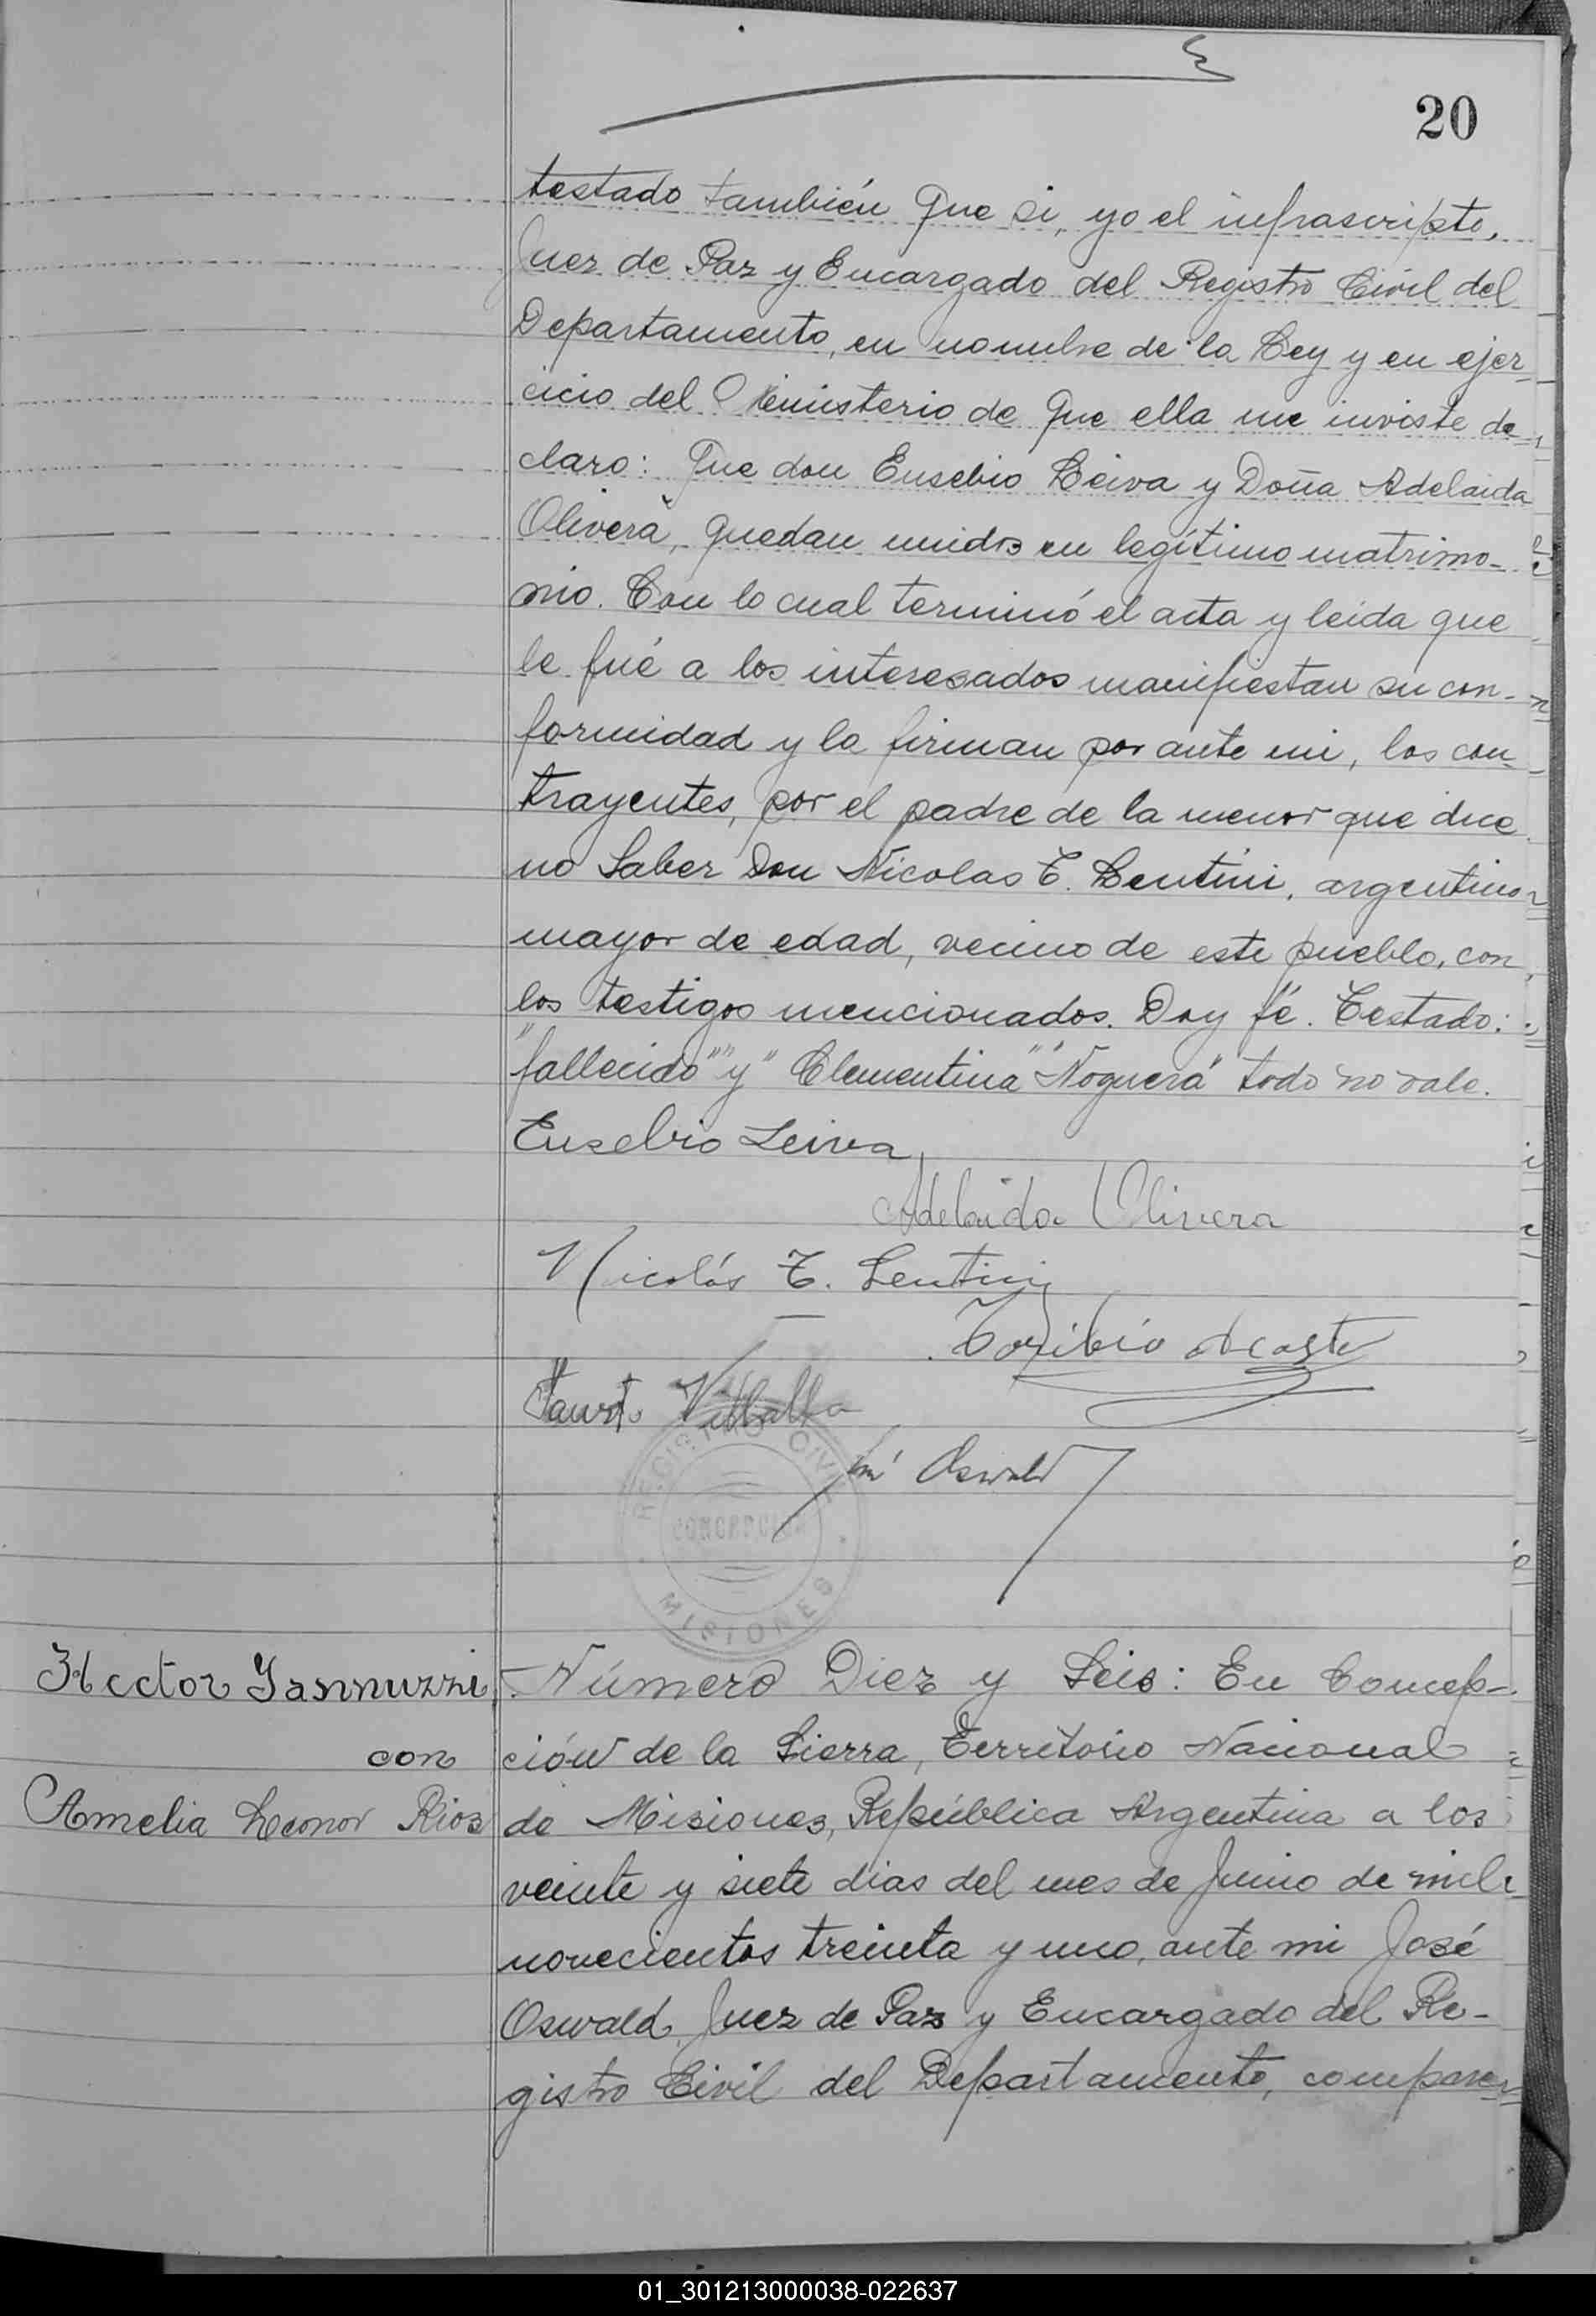 20
testado también que si, yo el infrascripto,
Juez de Paz y Encargado del Registro Civil del
Departamento, en nombre de la Ley y en ejer-
cicio del Ministerio de que ella me inviste de-
claro: Que don Eusebio Leiva y Doña Adelaida
Olivera, quedan unidos en legítimo matrimo-
nio. Con lo cual terminó el acta y leida que
le fué a los interesados manifiestan su con-
formidad y la firman por ante mi, los con-
trayentes, por el padre de la menor que dice
no saber Don Nicolas T. Lentini, argentino
mayor de edad, vecino de este pueblo, con
los testigos mencionados. Doy fé. Testado:
"fallecido" "y" "Clementina" "Noguera" todo no vale.
Eusebio Leiva
Adelaida Olivera
Nicolás T. Lentini
Toribio Acosta
Fausto Villalba
Oswald
REGISTRO CIVIL
CONCEPCION
MISIONES
Hector Iannuzzi
con
Amelia Leonor Rios
Número Diez y Seis: En Concep-
ción de la Sierra, Territorio Nacional
de Misiones, República Argentina a los
veinte y siete dias del mes de Junio de mil
novecientos treinta y uno, ante mi José
Oswald, Juez de Paz y Encargado del Re-
gistro Civil del Departamento, compare-
01_301213000038-022637